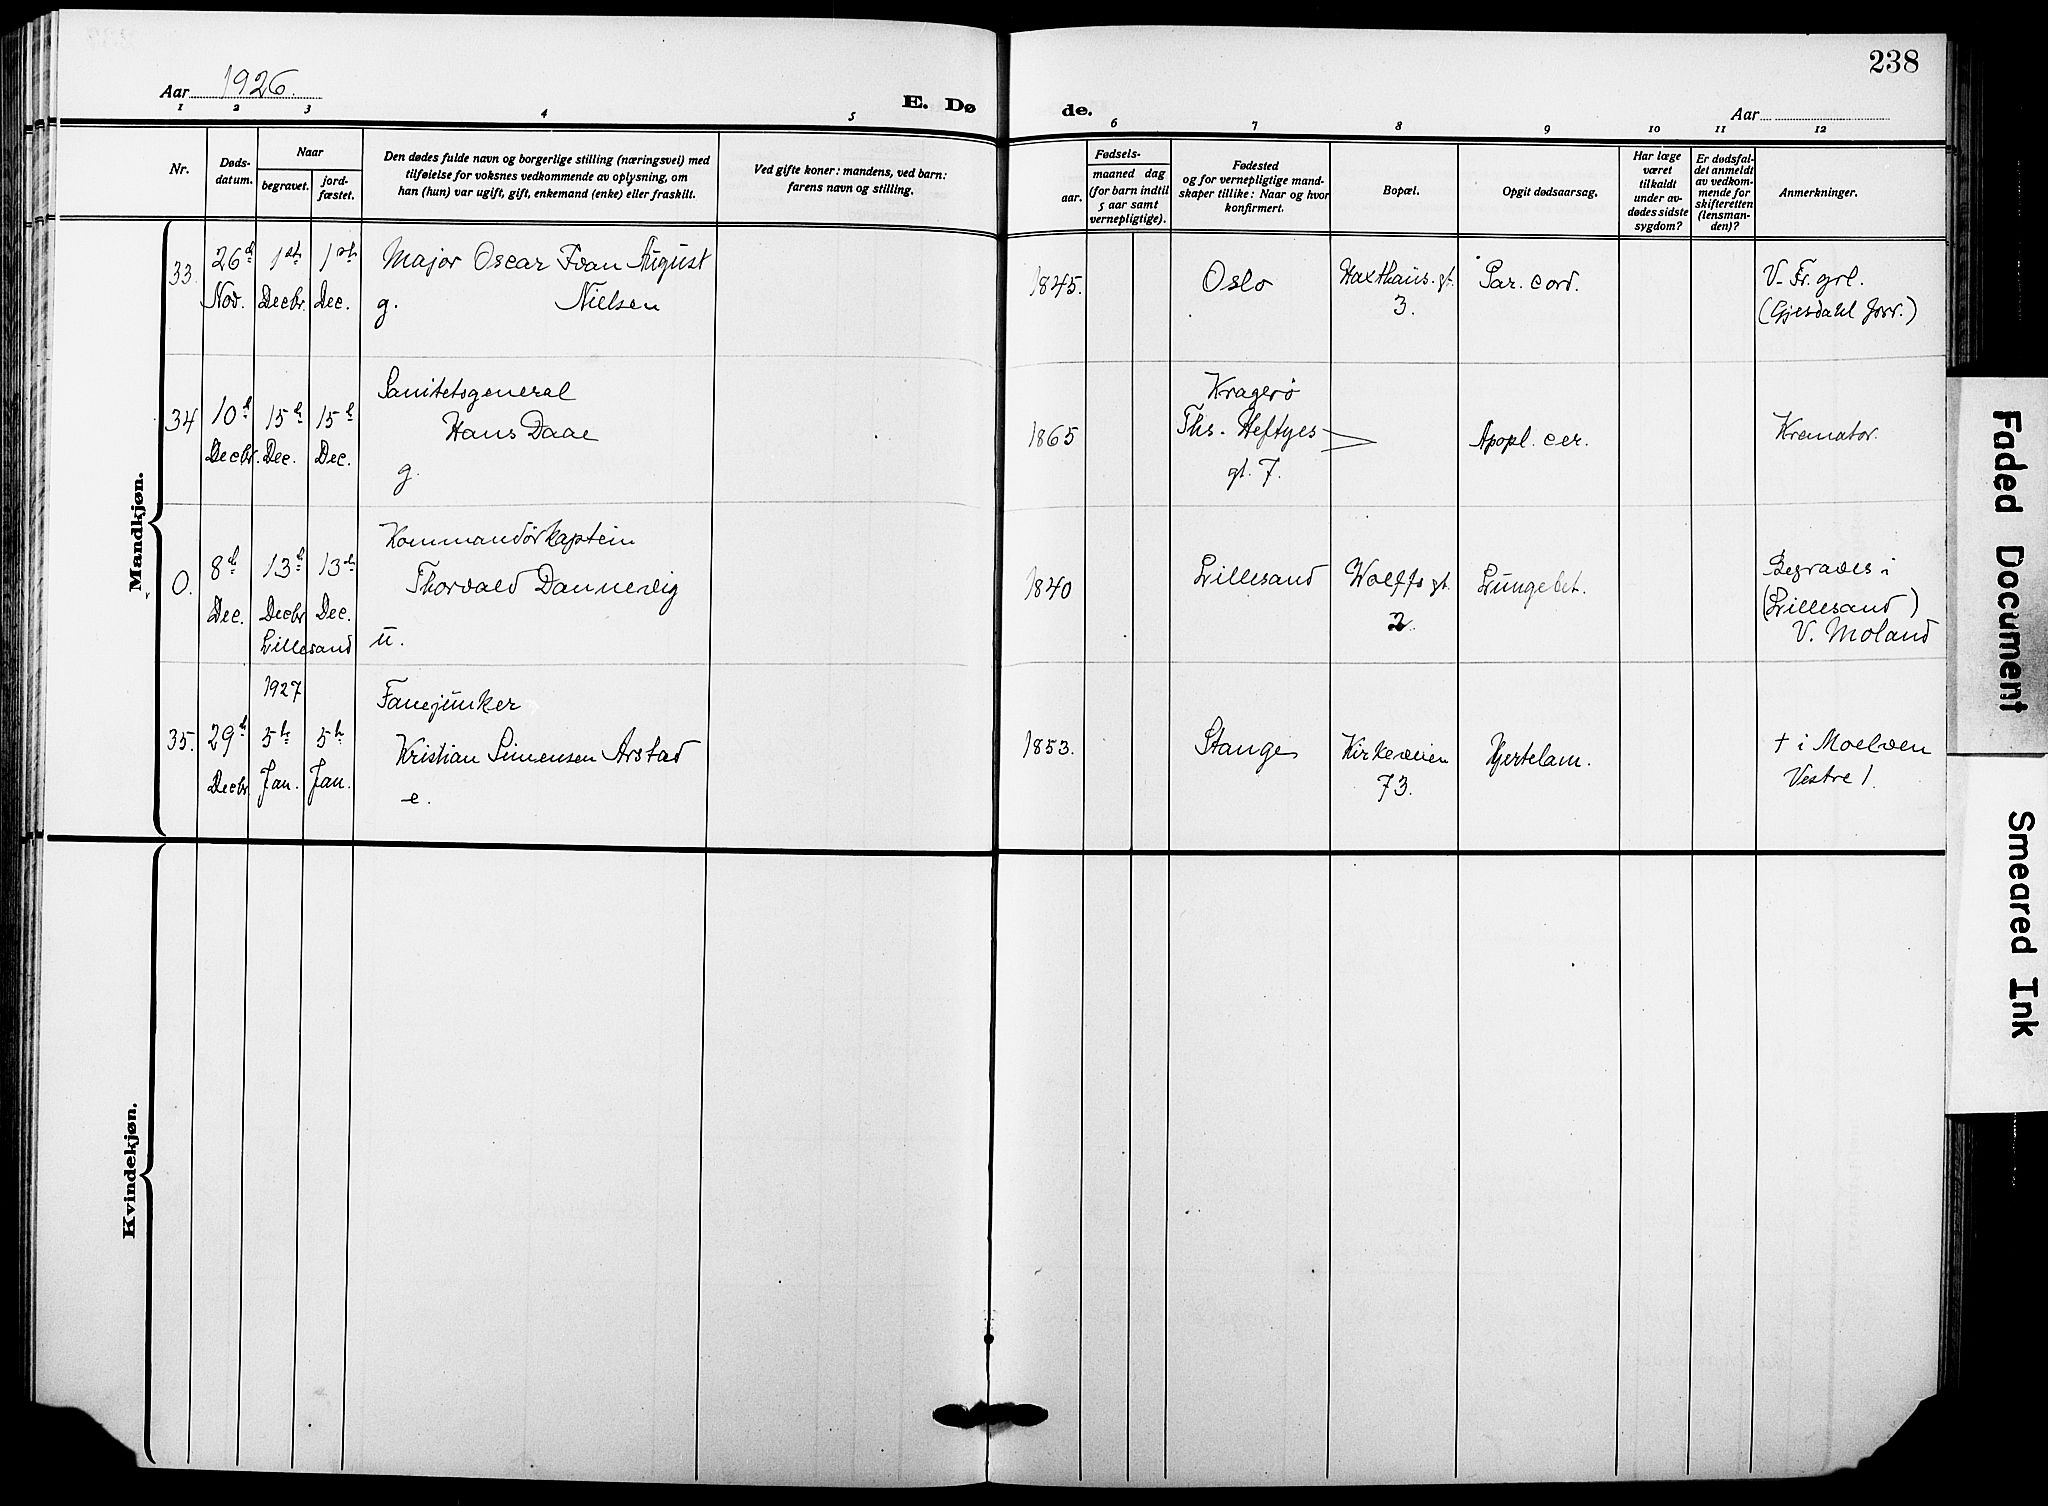 238
Aar 1926.
E. Dø de.
Aar
1 2 3 4 5 6 7 8 9 10 11 12
Nr.
Døds-
datum.
Naar
begravet.
jord-
fæstet.
Den dødes fulde navn og borgerlige stilling (næringsvei) med
tilføielse for voksnes vedkommende av oplysning, om
han (hun) var ugift, gift, enkemand (enke) eller fraskilt.
Ved gifte koner: mandens, ved barn:
farens navn og stilling.
Fødsels-
aar.
maaned dag
(for barn indtil
5 aar samt
vernepligtige).
Fødested
og for vernepligtige mand-
skaper tillike: Naar og hvor
konfirmert.
Bopæl.
Opgit dødsaarsag.
Har læge
været
tilkaldt
under av-
dødes sidste
sygdom?
Er dødsfal-
det anmeldt
av vedkom-
mende for
skifteretten
(lensman-
den)?
Anmerkninger.
Mandkjøn.
33. 26d Nov. 1ste Decbr. 1ste Dec.
Major Oscar Ivan August
g. Nielsen
1845. Oslo
Haxthaus. gt.
3.
Par. cord.
V. Fr. grl.
(Gjesdahl forr.)
34 10d Decbr. 15d Dec. 15d Dec.
Sanitetsgeneral
Hans Daae
g.
1865
Kragerø
Ths. Heftyes
gt. 7.
Apopl. cer.
Kremator.
0. 8d Dec. 13d Decbr 13de Dec.
Lillesand
Kommandørkaptein
Thorvald Dannevig
u.
1840 Lillesand
Wolffs gt.
2.
Lungebet.
Begraves i
(Lillesand)
V. Moland
1927
35. 29d Decbr 5te Jan. 5te Jan.
Fanejunker
Kristian Simensen Arstad
e.
1853. Stange
Kirkeveien
73.
Hjertelam.
† i Moelven
Vestre 1.
Kvindekjøn.
Faded Document
Smeared Ink